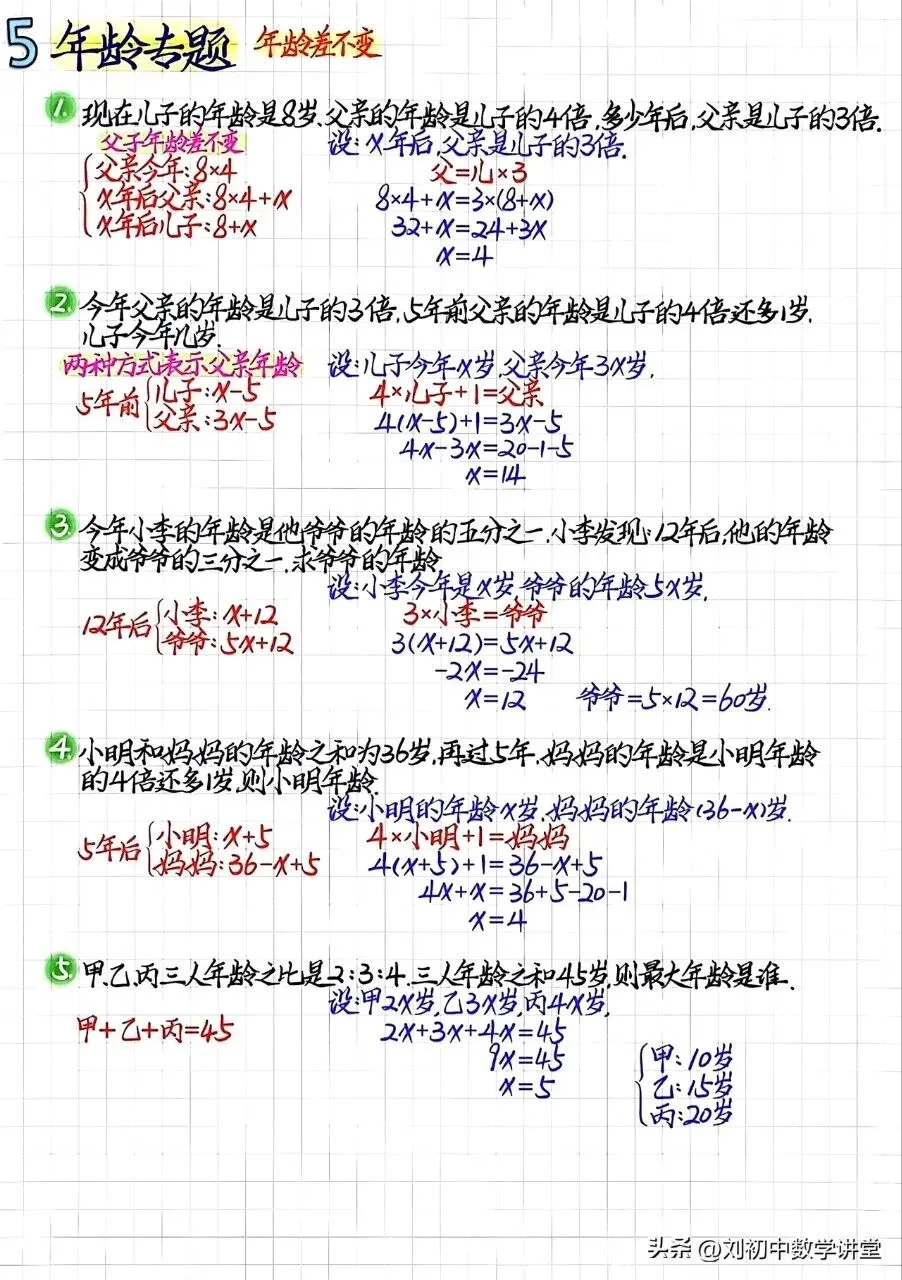 5 年龄专题 年龄差不变
1. 现在儿子的年龄是8岁、父亲的年龄是儿子的4倍,多少年后,父亲是儿子的3倍.
父子年龄差不变 设:x年后,父亲是儿子的3倍.
父亲今年:8×4 父=儿×3
x年后父亲:8×4+x 8×4+x=3×(8+x)
x年后儿子:8+x 32+x=24+3x
x=4
2. 今年父亲的年龄是儿子的3倍,5年前父亲的年龄是儿子的4倍还多1岁,
儿子今年几岁.
两种方式表示父亲年龄 设:儿子今年x岁,父亲今年3x岁.
5年前 儿子:x-5 4×儿子+1=父亲
父亲:3x-5 4(x-5)+1=3x-5
4x-3x=20-1-5
x=14
3 今年小李的年龄是他爷爷的年龄的五分之一.小李发现:12年后,他的年龄
变成爷爷的三分之一,求爷爷的年龄
设:小李今年是x岁,爷爷的年龄5x岁.
12年后 小李:x+12 3×小李=爷爷
爷爷:5x+12 3(x+12)=5x+12
-2x=-24
x=12 爷爷=5×12=60岁.
4 小明和妈妈的年龄之和为36岁,再过5年,妈妈的年龄是小明年龄
的4倍还多1岁,则小明年龄.
设:小明的年龄x岁.妈妈的年龄(36-x)岁.
5年后 小明:x+5 4×小明+1=妈妈
妈妈:36-x+5 4(x+5)+1=36-x+5
4x+x=36+5-20-1
x=4
5. 甲、乙、丙三人年龄之比是2:3:4.三人年龄之和45岁,则最大年龄是谁.
设:甲2x岁,乙3x岁,丙4x岁.
甲+乙+丙=45 2x+3x+4x=45
9x=45 甲:10岁
x=5 乙:15岁
丙:20岁
头条 @刘初中数学讲堂